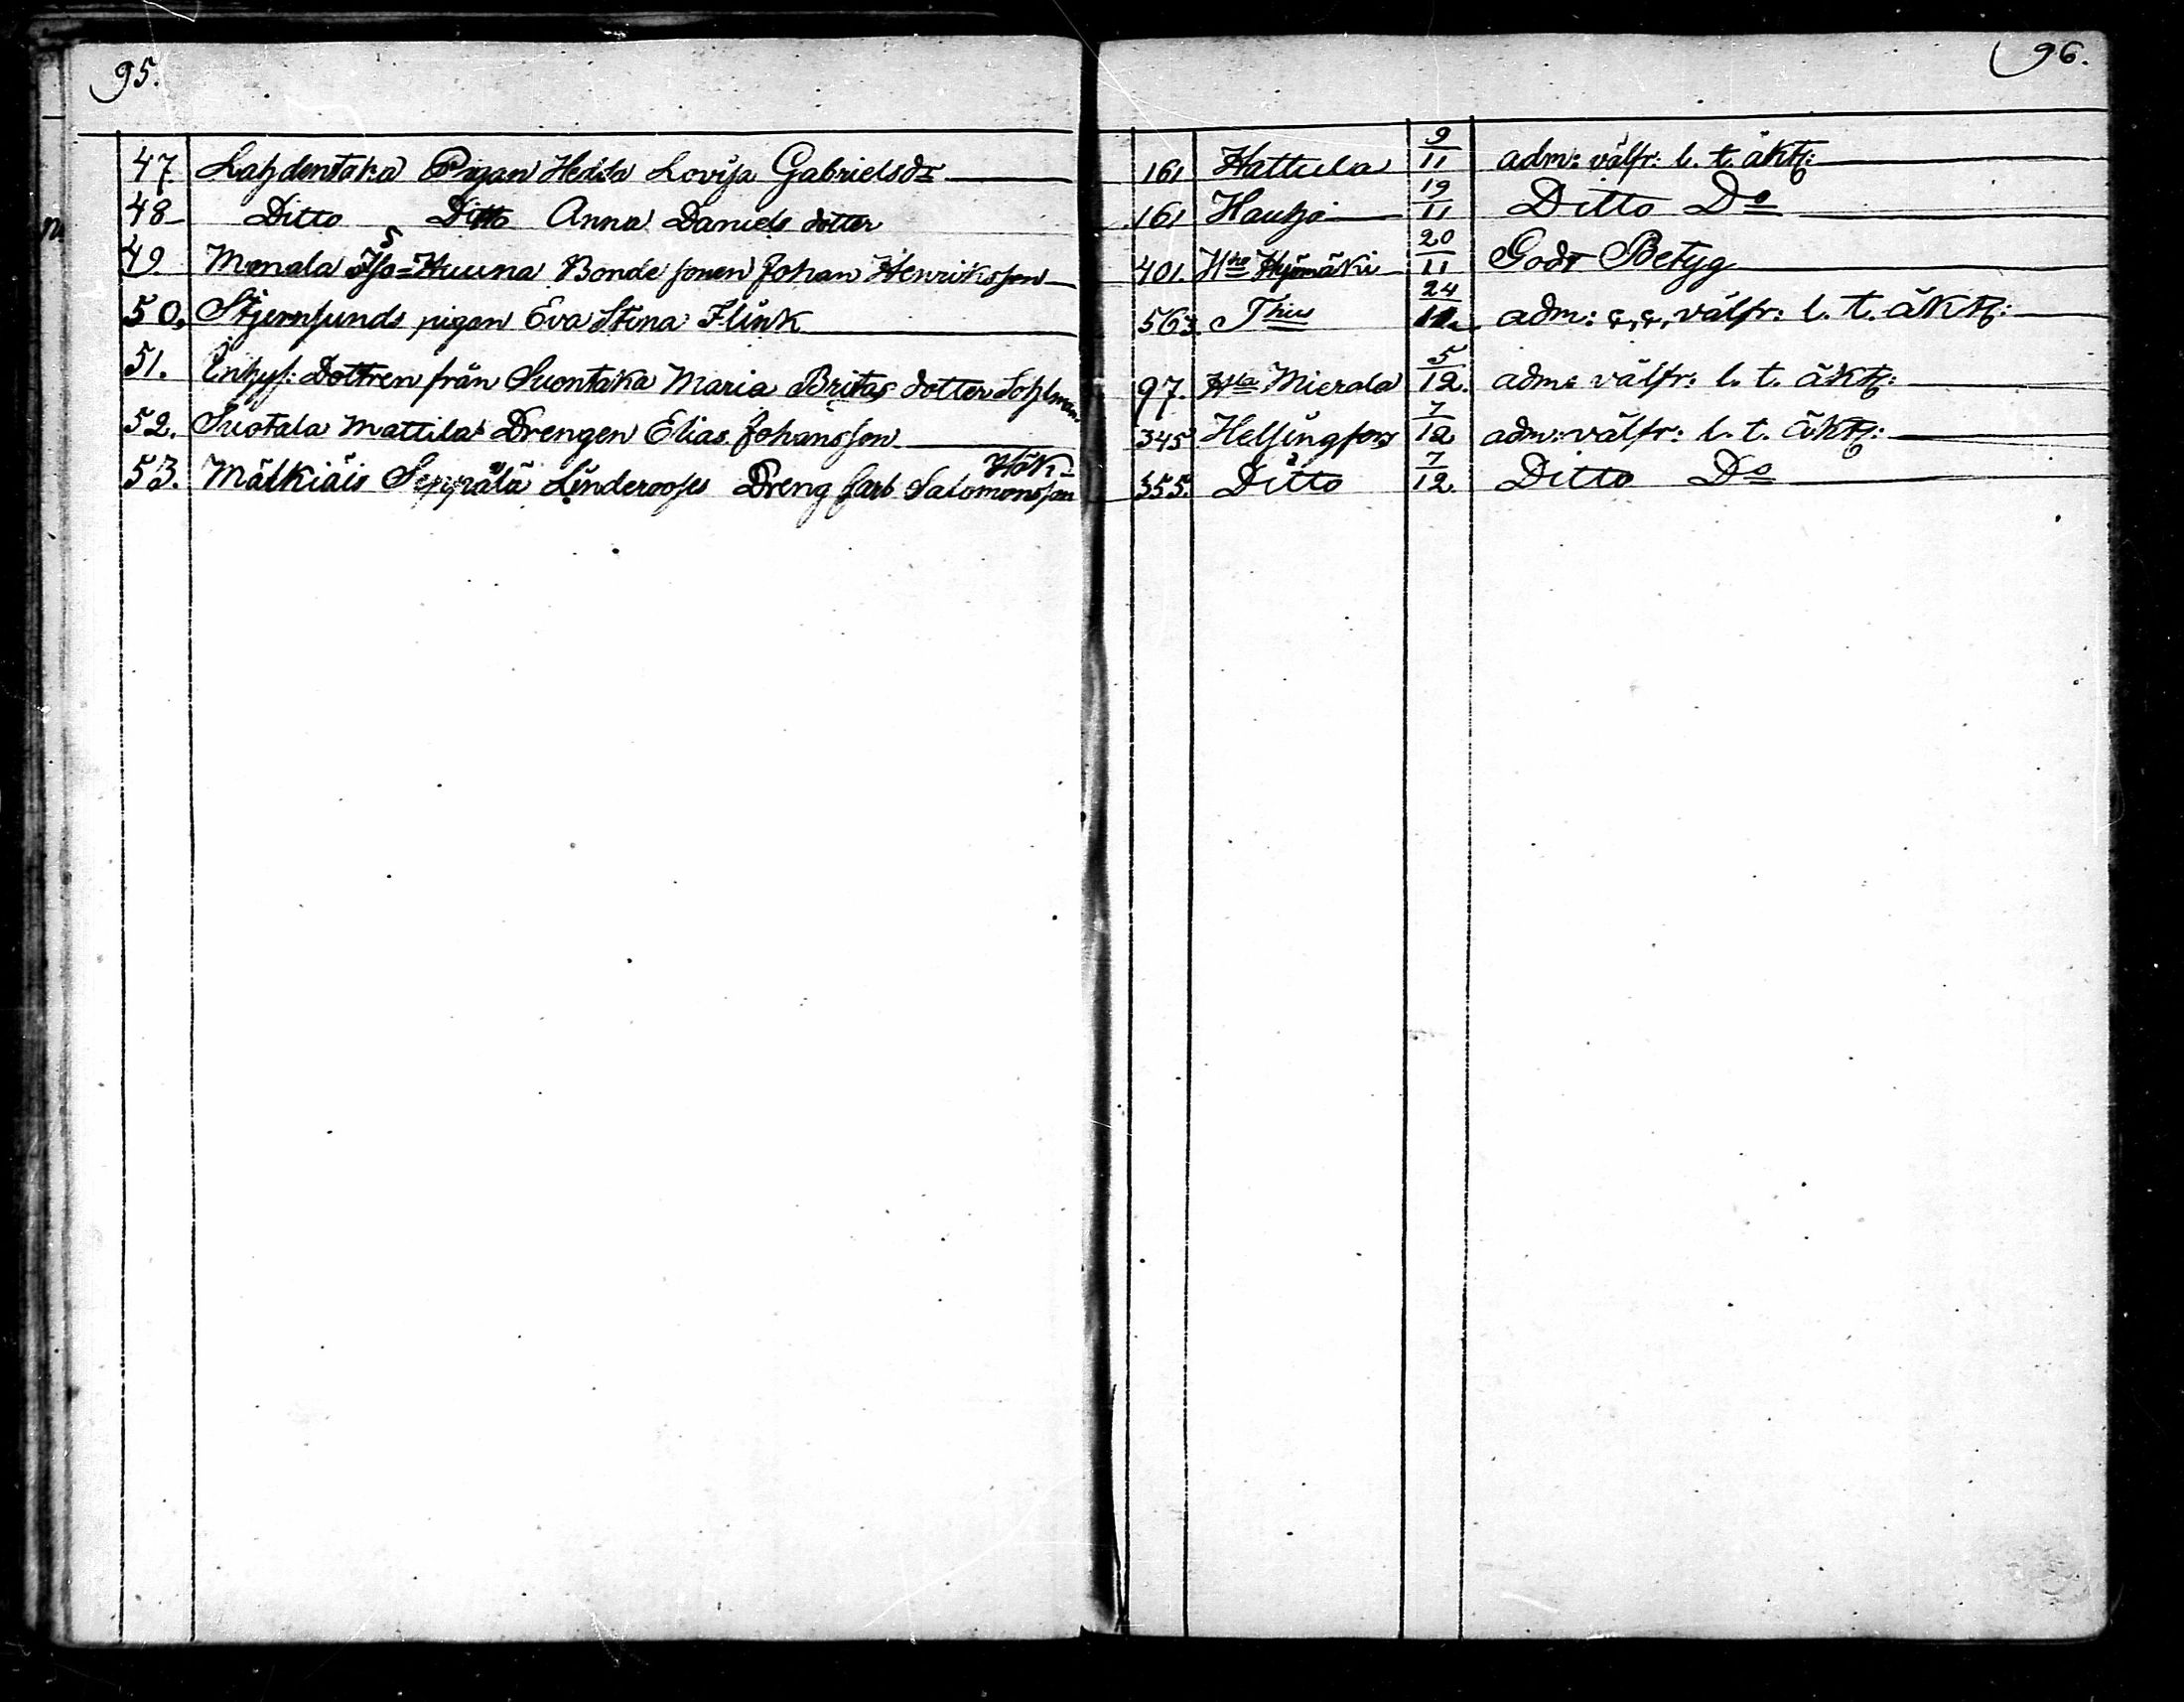 95.
96.
47. Lahdentaka Pigan Hedda Lovisa Gabrielsdr 161 Hattula 9/11 adm: välfr: l. t. äktsk:
48 Ditto Ditto Anna Daniels dotter 161 Hauho 19/11 Ditto Do
49. Monala Iso=Huuna Bonde sonen Johan Henriksson 401. 20/11 Godt Betyg
50. Stjernsunds pigan Eva Stina Flink 563. Thus 24/11 adm: välfr: l. t. äktsk:
51. Inhys: Dottren från Suontaka Maria Britas dotter Sohlman 97. Hla Mierola 5/12. adm: välfr: l. t. äktsk:
52. Suotala Mattila Drengen Elias Johansson 345 Helsingfors 7/12 adm: välfr: l. t. äktsk:
Hök:
53. Mälkiäis Seppälä Linderooses Dreng Carb Salomonsson 355. Ditto 7/12. Ditto Do